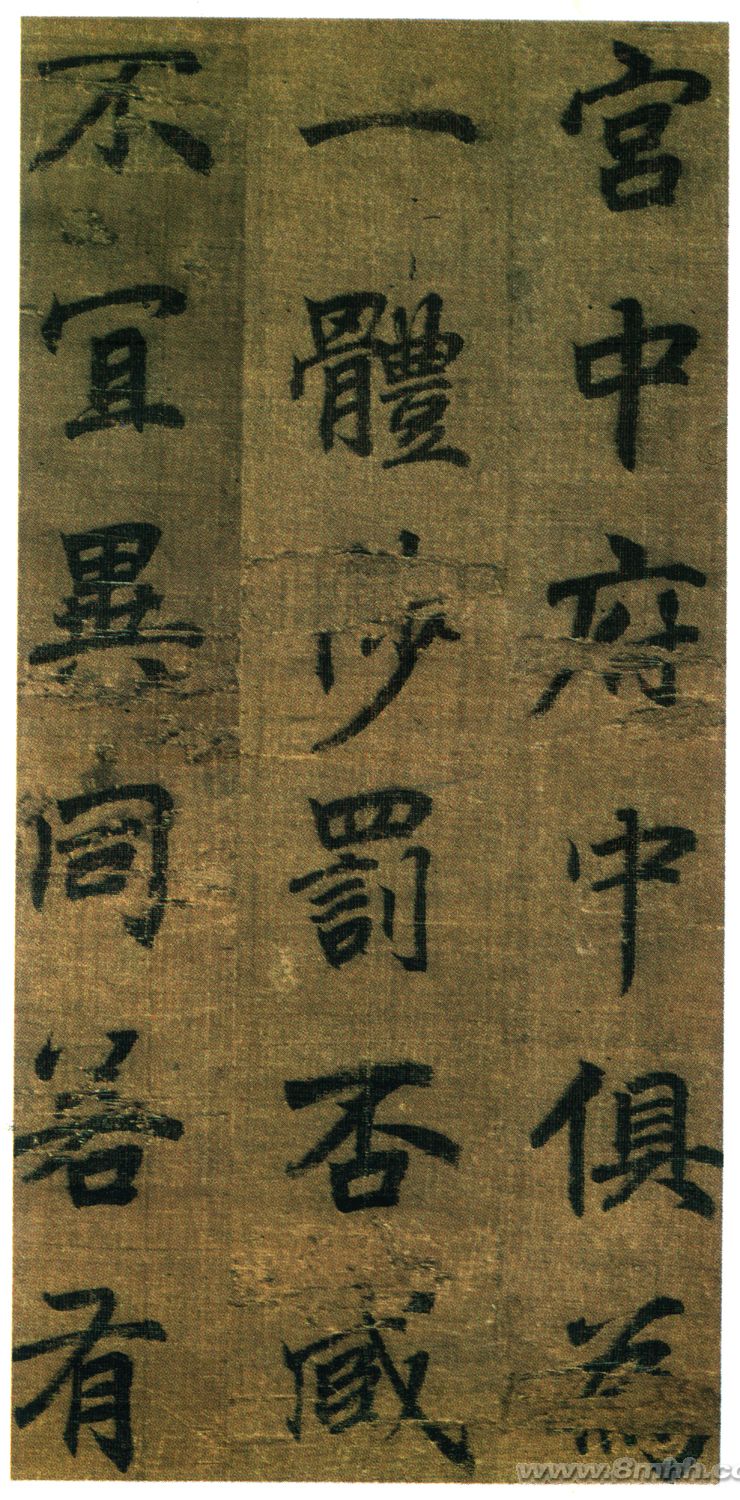 宮中府中俱為
一體陟罰否臧
不宜異同若有
www.8mhh.co